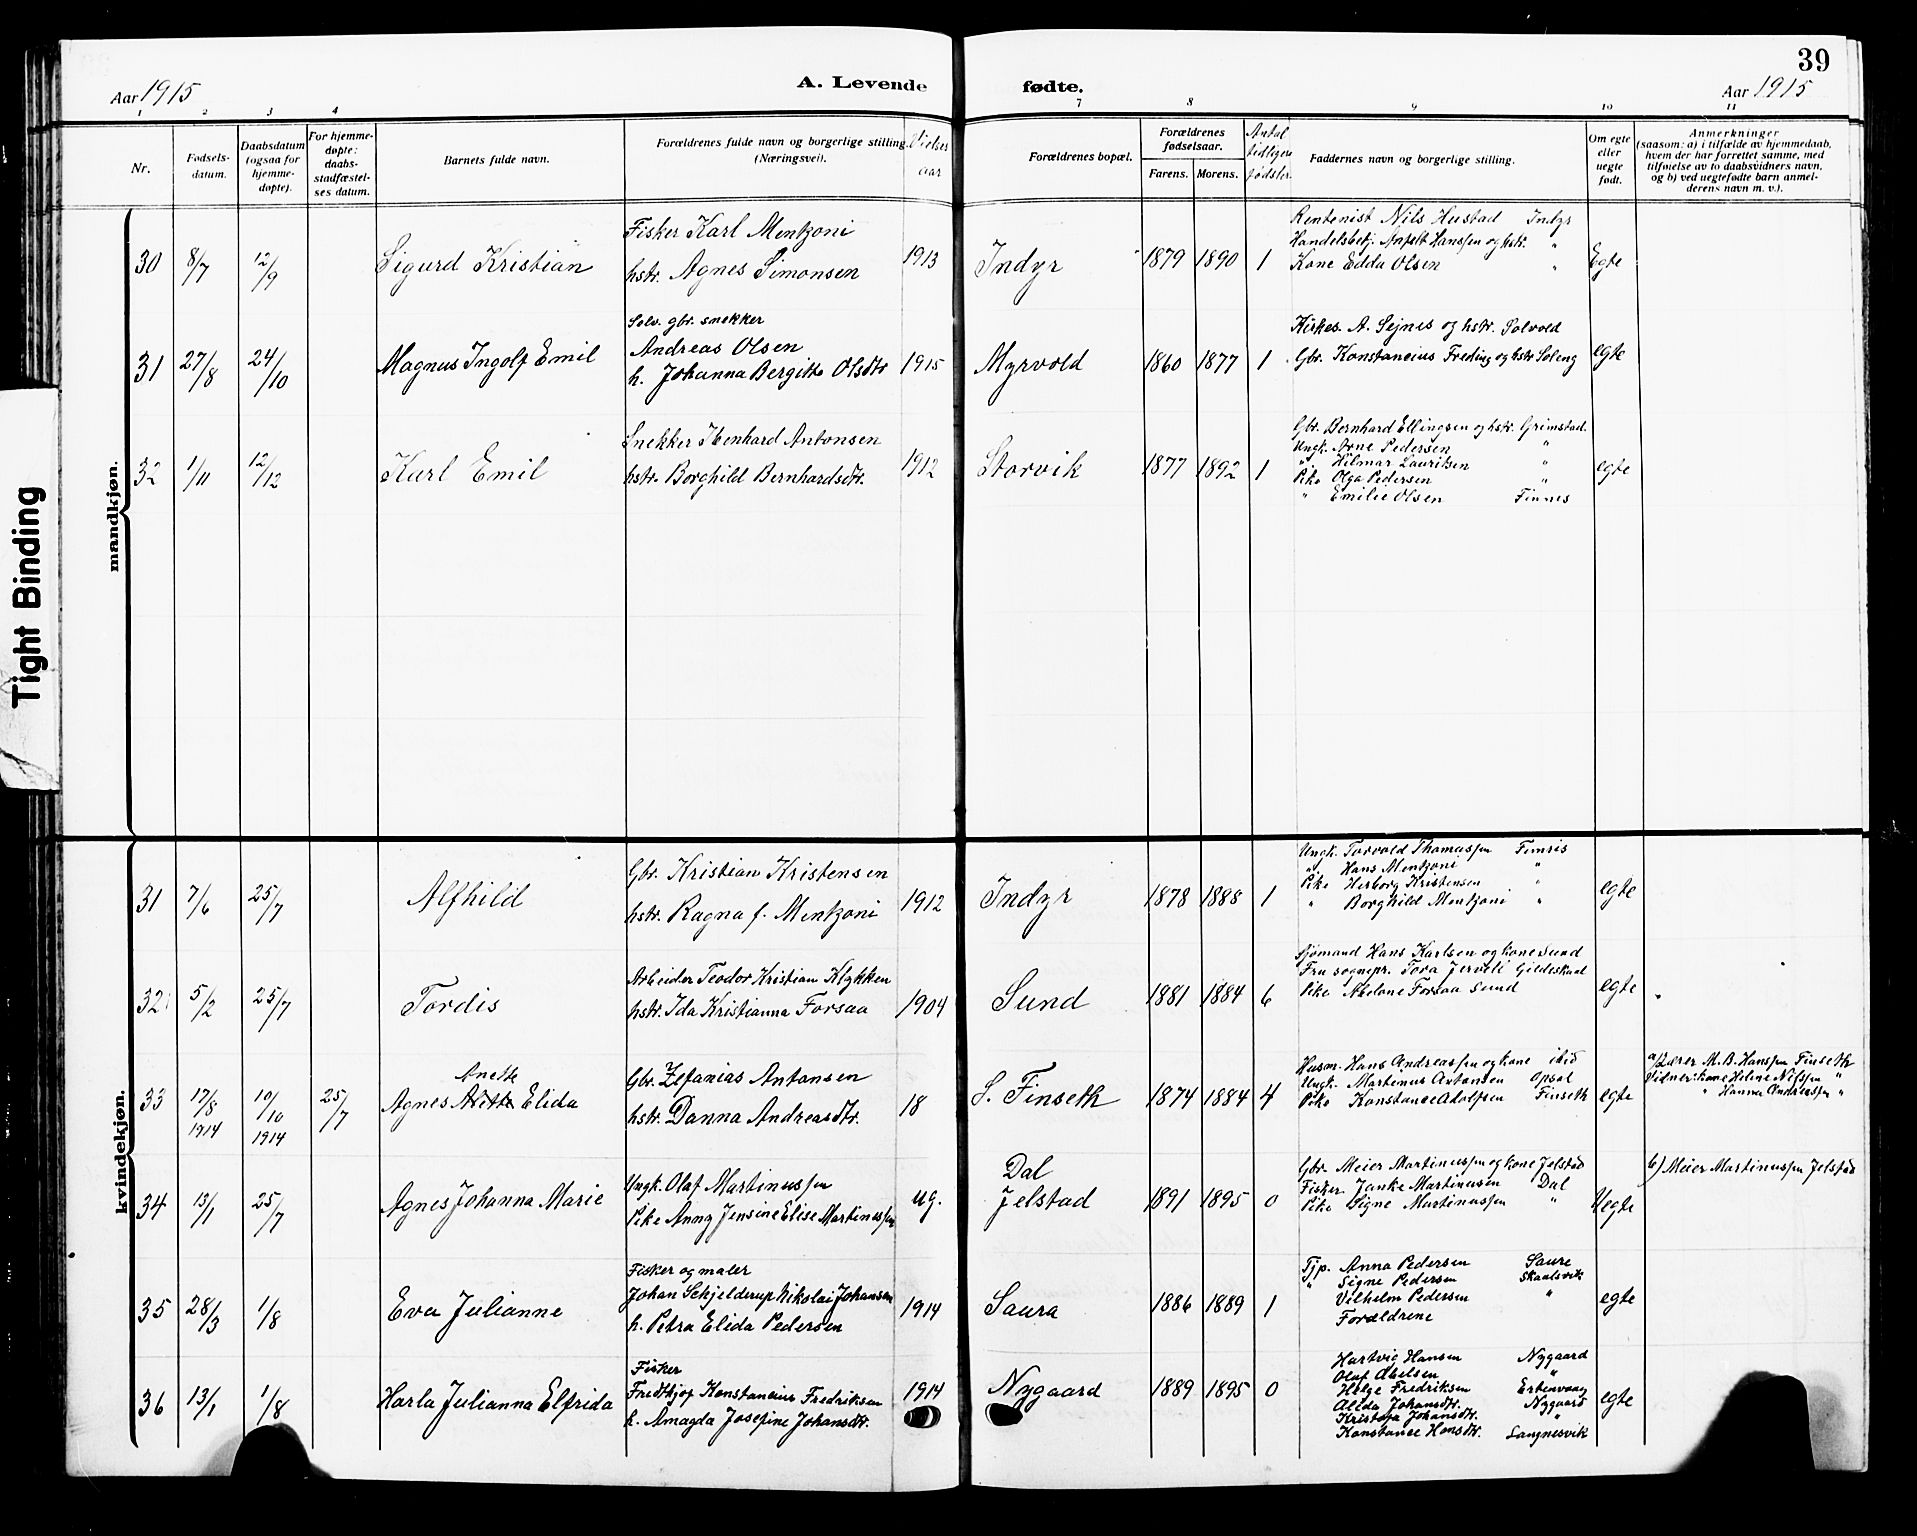 39
Aar 1915
A. Levende fødte.
Aar 1915
1 2 3 4 7 8 9 10 11
Nr.
Fødsels-
datum.
Daabsdatum
(ogsaa for
hjemme-
døpte).
For hjemme-
døpte:
daabs-
stadfæstel-
ses datum.
Barnets fulde navn.
Forældrenes fulde navn og borgerlige stilling
(Næringsvei).
Vielses
aar
Forældrenes bopæl.
Forældrenes
fødselsaar.
Farens. Morens.
Antal
tidligere
fødsler
Faddernes navn og borgerlige stilling.
Om egte
eller
uegte
født.
Anmerkninger
(saasom: a) i tilfælde av hjemmedaab,
hvem der har forrettet samme, med
tilføielse av to daabsvidners navn,
og b) ved uegtefødte barn anmel-
derens navn m. v.).
Tight Binding
mandkjøn.
30 8/7 12/9 Sigurd Kristian
Fisker Karl Mentzoni
hstr. Agnes Simonsen
1913 Indyr 1879 1890 1
Rentenist Nils Hustad Indyr
Handelsbetj. Hanssen og hstr. "
Kone Edda Olsen "
Egte
31 27/8 24/10 Magnus Ingolf Emil
Selv. gbr. snekker
Andreas Olsen
h. Johanna Bergitte Olsdtr
1915 Myrvold 1860 1877 1
Kirkes. A. Sejnes og hstr. Solvold
Gbr. Konstancius Freding og hstr Soleng
egte
32 1/11 12/12 Karl Emil
Snekker Ibenhard Antonsen
hstr. Borghild Bernhardsdtr.
1912 Storvik 1877 1892 1
Gbr. Bernhard Ellingsen og hstr. Grimstad.
Ungk. Arne Pedersen "
" Hilmar Lauritsen "
Pike Olga Pedersen "
" Emilie Olsen Finnes
egte
kvindekjøn.
31 7/6 25/7 Alfhild
Gbr. Kristian Kristensen
hstr. Ragna f. Mentzoni
1912 Indyr 1878 1888 1
Ungk. Torvold Thomassen
" Hans Mentzoni "
Pike Herborg Kristensen "
" Borghild Mentzoni "
egte
32 5/2 25/7 Tordis
Arbeider Teodor Kristian Klykken
hstr. Ida Kristianna Forsaa
1904 Sund 1881 1884 6
Sjømand Hans Karlsen og kone Sund
Fru sognepr. Tora Jervell Gildeskaal
Pike Abelone Forsaa Sund
egte
33 17/8 1914 10/10 1914 25/7
Anette
Agnes Elida
Gbr. Zefanias Antonsen
hstr. Danna Andreasdtr.
18 S. Finseth 1874 1884 4
Husm. Hans Andreassen og kone ibid
Ungk. Martenus Antonsen Opsal
Pike Konstance Adolfsen Finseth
egte
a) Lærer M. B. Hanssen Finseth
Vidner: kone Helene Nilssen "
" Hanna Andreassen "
34 13/1 25/7 Agnes Johanna Marie
Ungk. Olaf Martinussen
Pike Anny Jensine Elise Martinussen
ug.
Dal
Jelstad 1891 1895 0
Gbr. Meier Martinussen og kone Jelstad
Fisker Janke Martinusen Dal
Pike Signe Martinussen "
Uegte
b) Meier Martinussen Jelstad
35 28/3 1/8 Eva Julianne
Fisker og maler
Johan Schjelderup Nikolai Johansen
h. Petra Elida Pedersen
1914 Saura 1886 1889 1
Tjp. Anna Pedersen Saure
" Signe Pedersen Skaalsvik
Vilhelm Pedersen "
Forældrene
egte
36 13/1 1/8 Harla Julianna Elfrida
Fisker
Fredthjof Konstancius Fredriksen
h. Amagda Josefine Johansdtr.
1914 Nygaard 1889 1895 0
Hartvig Hansen Nygaard
Olaf Abelsen "
Helge Fredriksen Ertenvaag
Alida Johansdtr. Nygaard
Kristofa Johansdtr. "
Konstance Hansdtr. Langnesvik
egte